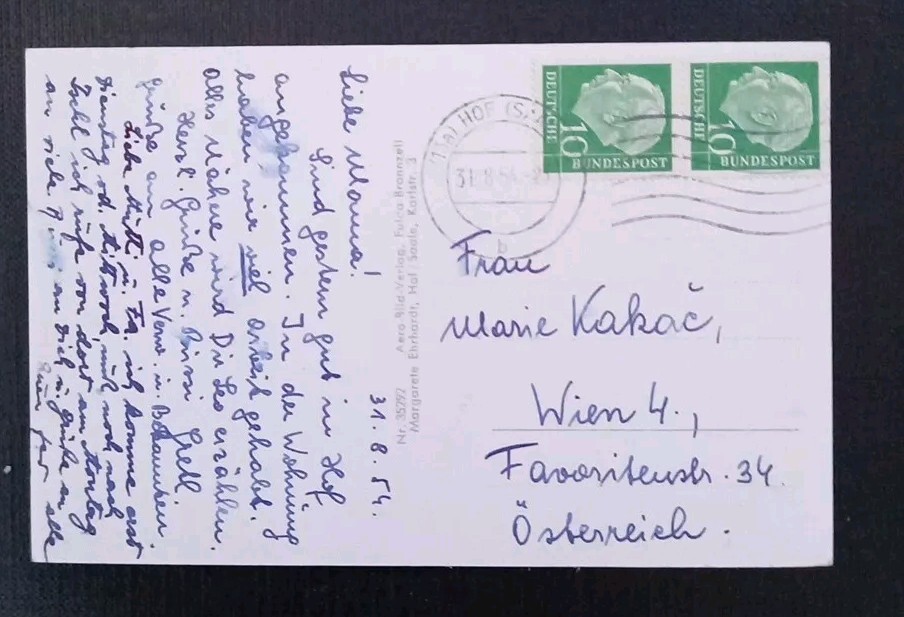 31.8.54.
Liebe Mama!
Sind gestern gut in Hof
angekommen. In der Wohnung
haben wir viel Arbeit gehabt.
Alles Nähere wird Dir Leo erzählen.
Herzl. Grüße u. Bussi Gretl
Grüße an alle Verw. u. Bekannten.
Liebe Mutti u. Fa. ich komme erst
Dienstag od. Mittwoch, muß noch nach
ich rufe von dort am Montag
an viele an Dich u. Grüße an
alle
Nr. 35292 Aero-Bild-Verlag, Fulda-Bronnzell
Margarete Ehrhardt, Hof / Saale, Karlstr. 3
(13a) HOF (SAALE)
31.8.54
b
DEUTSCHE
10
BUNDESPOST
DEUTSCHE
10
BUNDESPOST
Frau
Marie Kakač,
Wien 4.,
Favoritenstr. 34.
Österreich.